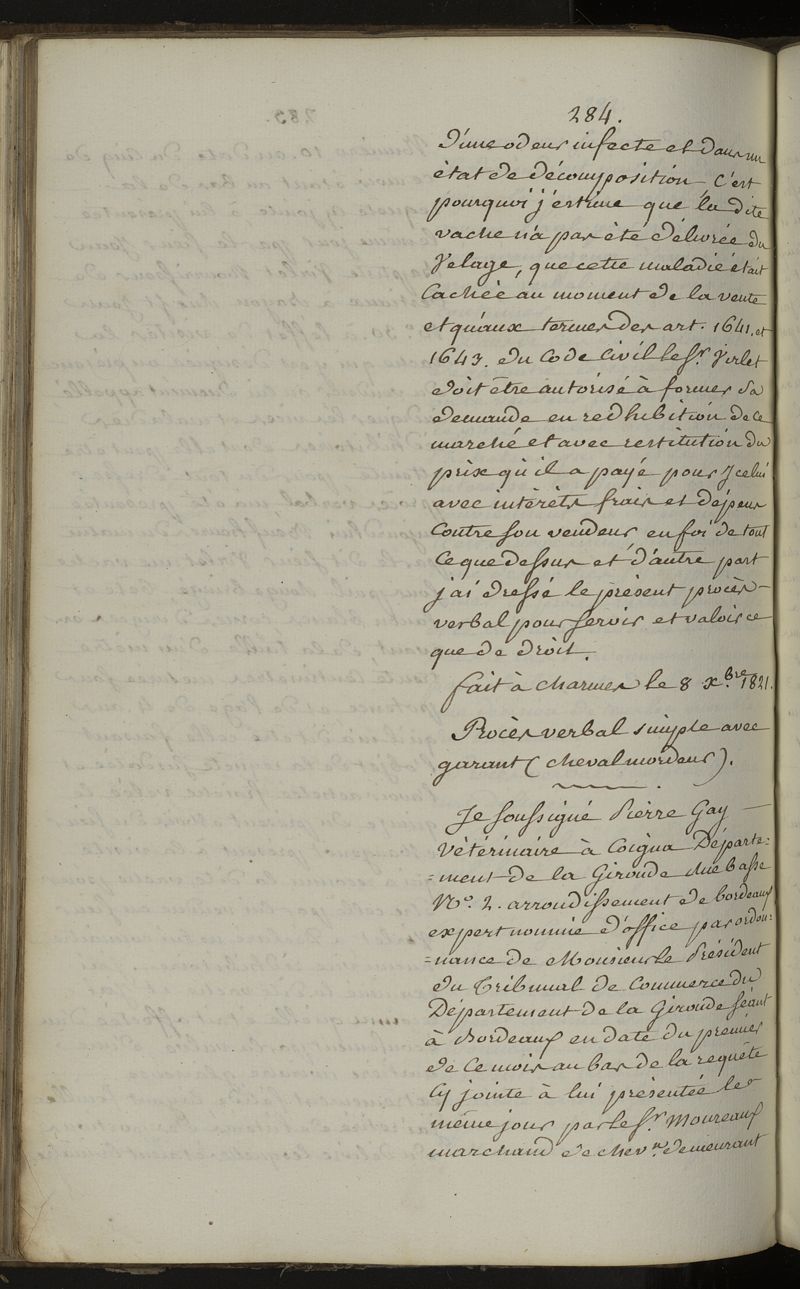 284.
D'une odeur infecte et dans un
ètat de décomposition. C'est
pourquoi j'estime que la dite
vache n'a pas èté délivrée du
velage, que cette maladie était
Cachée au moment de la vente
et qu'aux termes des art. 1641. et
1643. du Code Civil le Sr. Virlet
doit être autorisé à former sa
demande en redhibition de ce
marché et avec restitution du
prix qu'il a payé pour Jcelui
avec intèrêts frais et dépens
Contre son vendeur, en foi de tout
Ce que dessus et d'autre part
j'ai dressé le présent procès-
verbal pour servir et valoir ce
que de droit.
fait à charmes le 8 Xbre. 1821.
Procès verbal simple avec
garant ( cheval mordeur ).
Je soussigné Pierre Gay —
Vètérinaire à Départe=
=ment de la Gironde basse
No. 2. arrondissement de bordeaux
expert nommé d'office par ordon=
=nance de Monsieur le Président
du Tribunal de Commerce du
Département de la Gironde séant
à Bordeaux en date du premier
de Ce mois au bas de la requête
Cy jointe à lui présentée le
même jour par le Sr. Moureaux
marchand de chevx. demeurant